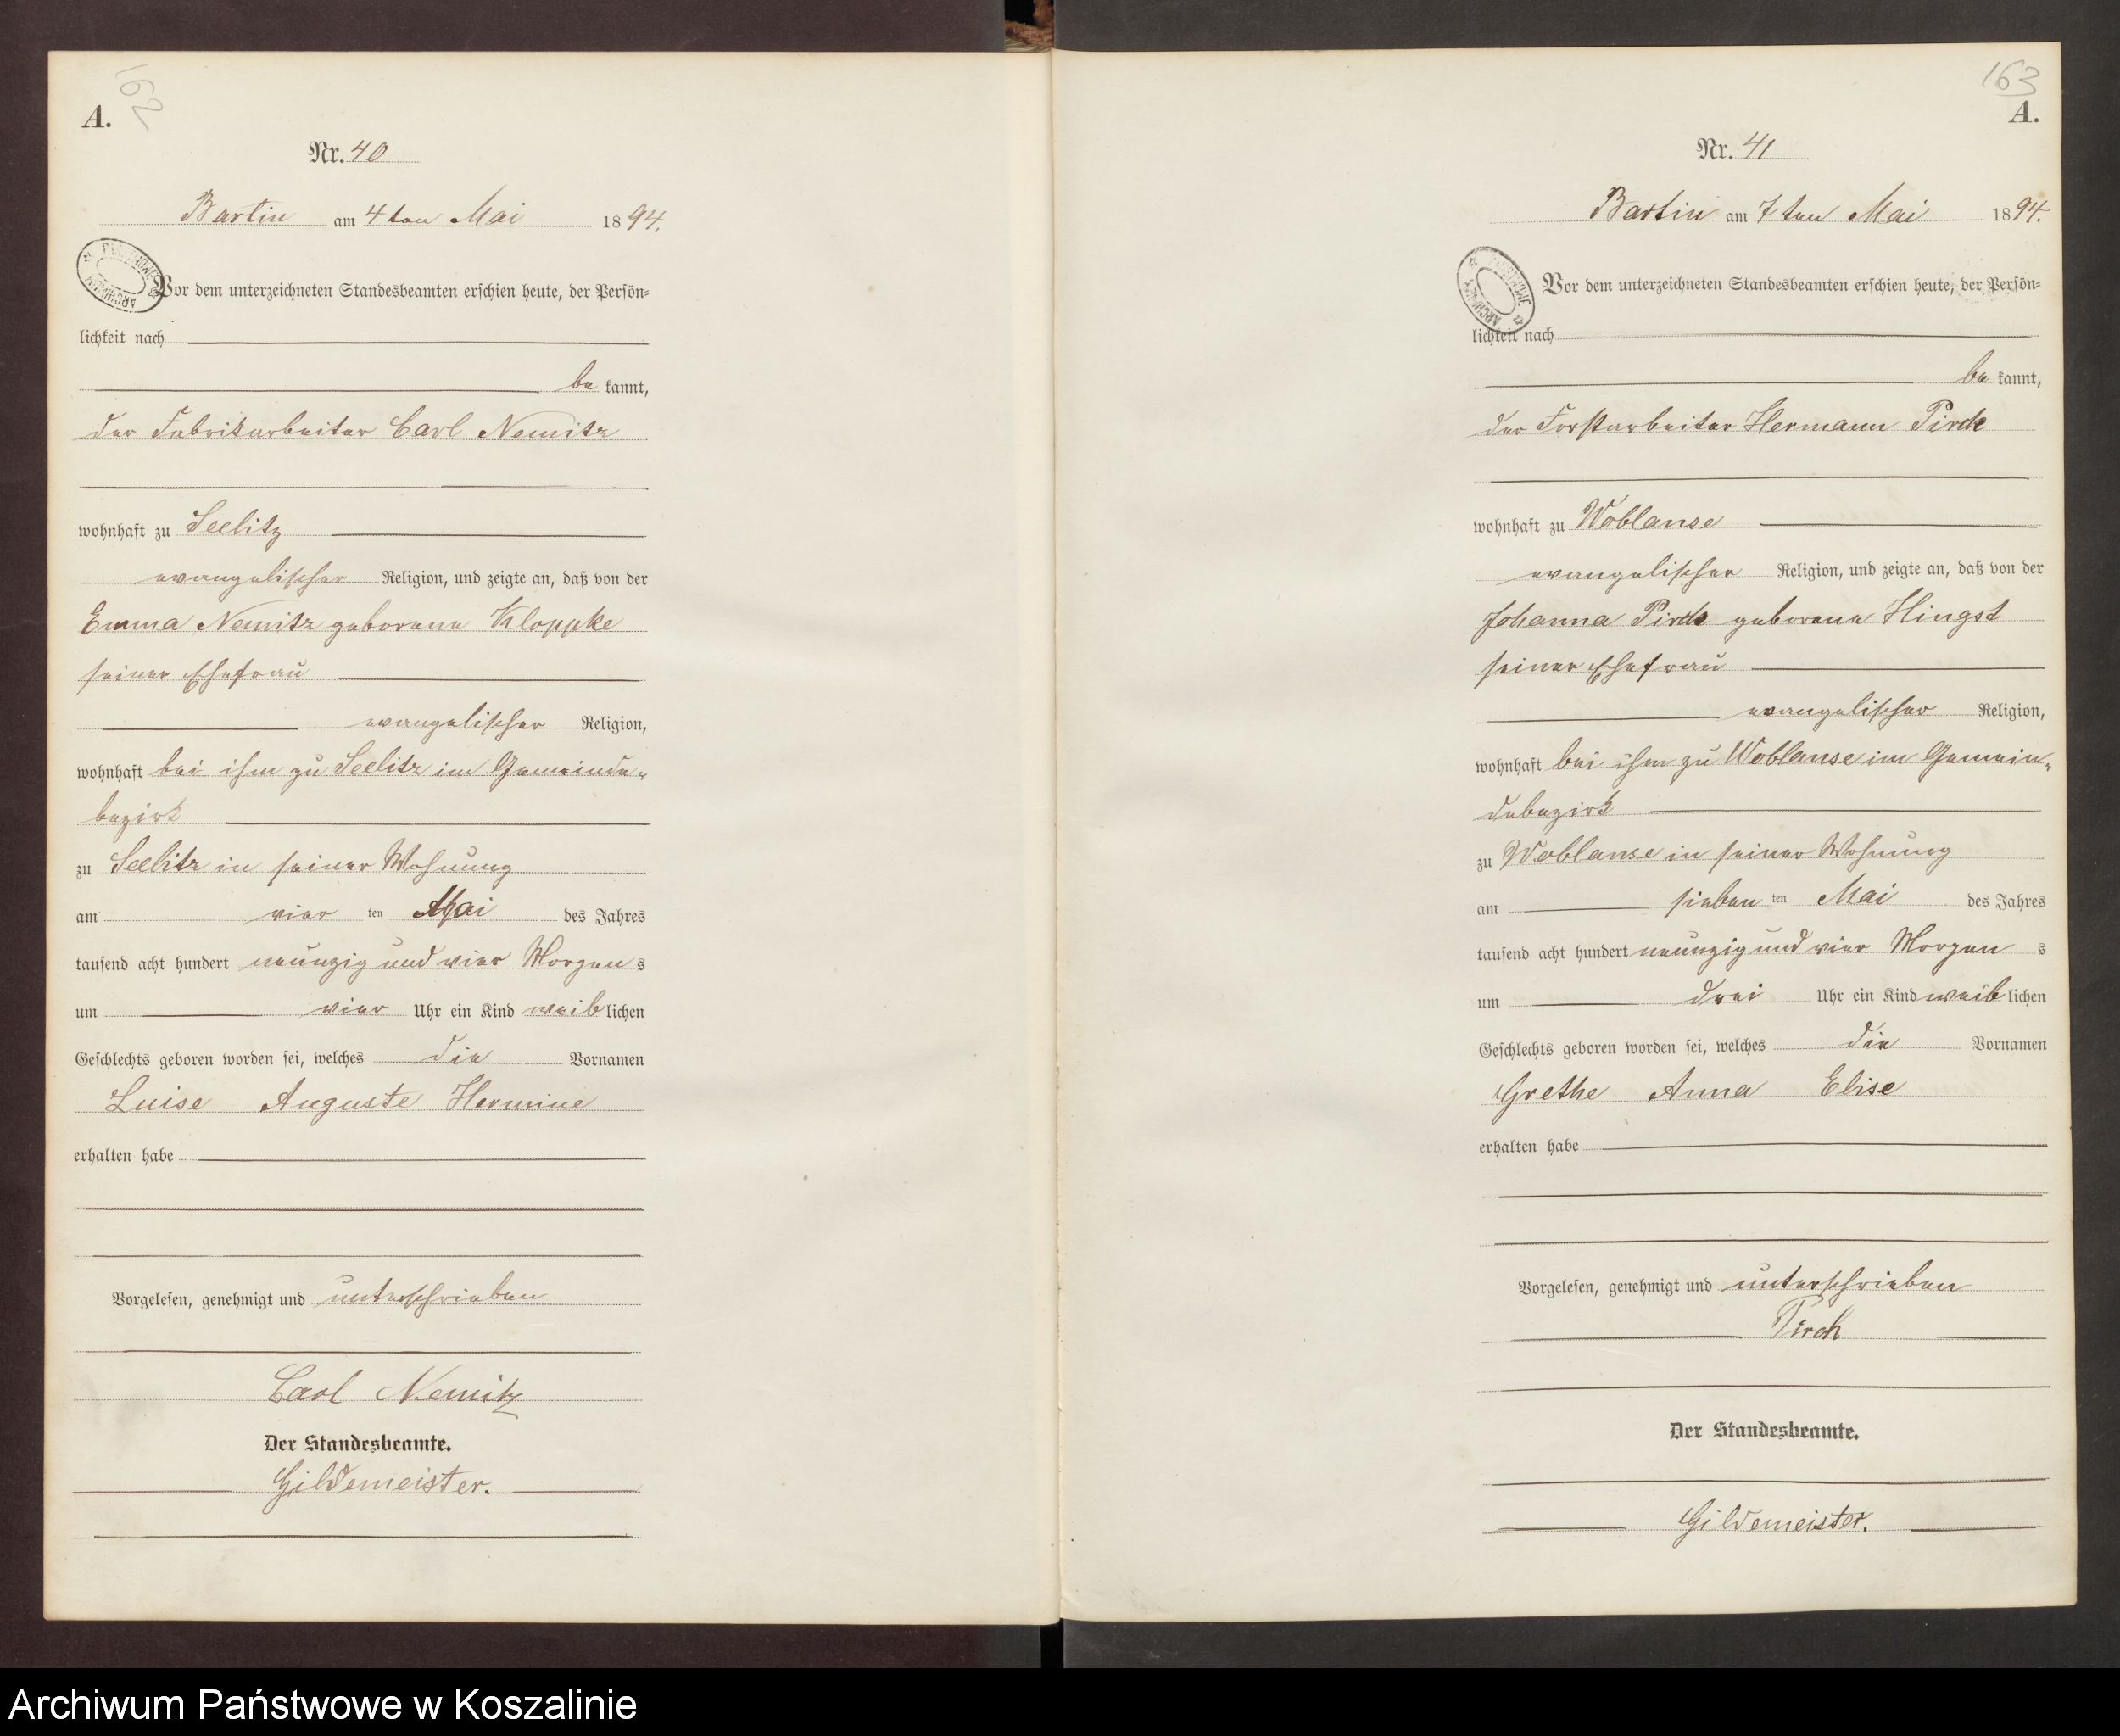 162
A.
Nr. 40
Bartin am 4ten Mai 1894.
Vor dem unterzeichneten Standesbeamten erschien heute, der Persön=
lichkeit nach
be kannt,
der Fabrikarbeiter Carl Nemitz
wohnhaft zu Seelitz
evangelischer Religion, und zeigte an, daß von der
Emma Nemitz geborene Kloppke
seiner Ehefrau
evangelischer Religion,
wohnhaft bei ihm zu Seelitz im Gemeinde=
bezirk
zu Seelitz in seiner Wohnung
am vier ten Mai des Jahres
tausend acht hundert neunzig und vier Morgen s
um vier Uhr ein Kind weib lichen
Geschlechts geboren worden sei, welches die Vornamen
Luise Auguste Hermine
erhalten habe
Vorgelesen, genehmigt und unterschrieben
Carl Nemitz
Der Standesbeamte.
Gildemeister.
163
A.
Nr. 41
Bartin am 7ten Mai 1894.
Vor dem unterzeichneten Standesbeamten erschien heute, der Persön=
lichkeit nach
be kannt,
der Forstarbeiter Hermann Pirck
wohnhaft zu Woblanse
evangelischer Religion, und zeigte an, daß von der
Johanna Pirck geborene Hingst
seiner Ehefrau
evangelischer Religion,
wohnhaft bei ihm zu Woblanse im Gemein=
debezirk
zu Woblanse in seiner Wohnung
am sieben ten Mai des Jahres
tausend acht hundert neunzig und vier Morgen s
um drei Uhr ein Kind weib lichen
Geschlechts geboren worden sei, welches die Vornamen
Grethe Anna Elise
erhalten habe
Vorgelesen, genehmigt und unterschrieben
Pirck
Der Standesbeamte.
Gildemeister.
Archiwum Państwowe w Koszalinie